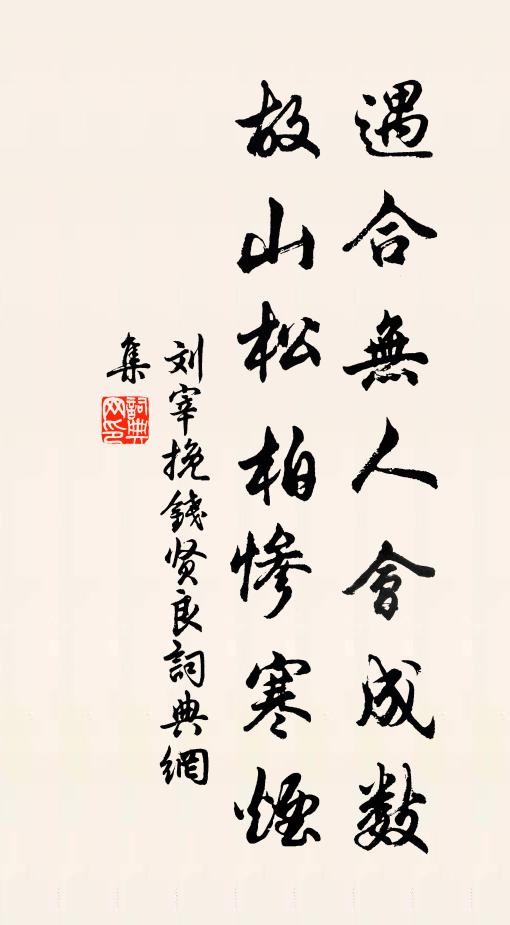 遇合無人會成数
故山松柏惨寒煙
刘宰挽錢贤良詞典網
集
詞典网印